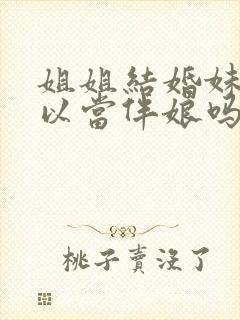 姐姐結婚妹
以當伴娘吗
桃子賣沒了